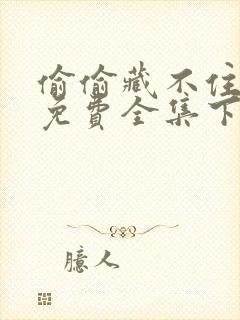 偷偷藏不住
免費全集下
臆人